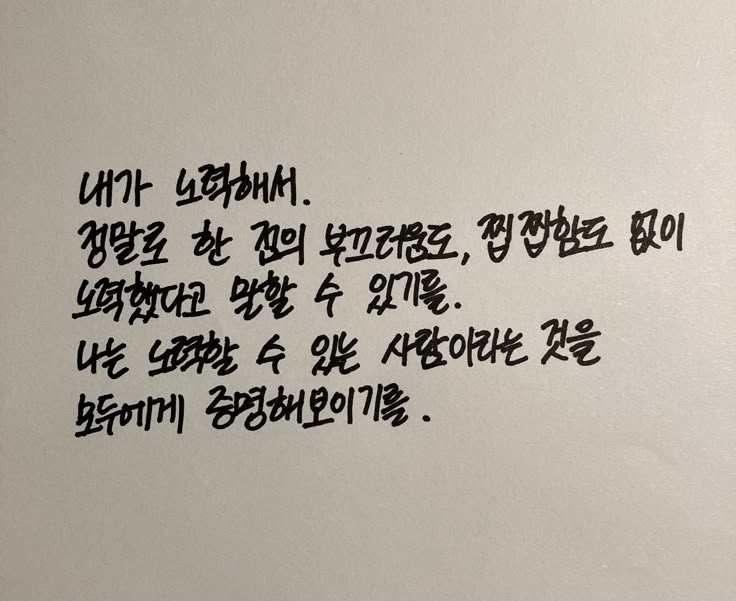 내가 노력해서.
정말로 한 점의 부끄러움도, 찝찝함도 없이
노력했다고 말할 수 있기를.
나는 노력할 수 있는 사람이라는 것을
모두에게 증명해보이기를.